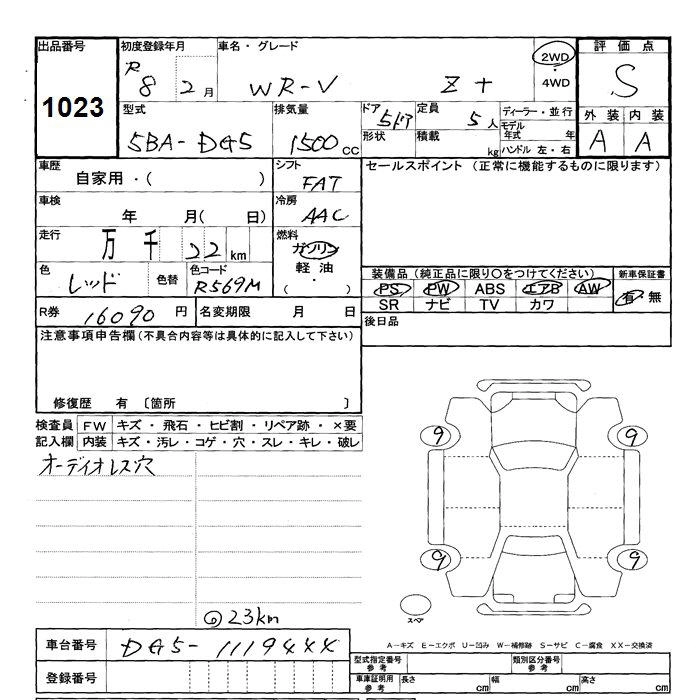 出品番号 初度登録年月 車名・グレード 評価点
1023 R8 2月 WR-V Z+ 2WD・4WD S
型式 排気量 ドア 定員 ディーラー・並行 外装 内装
5BA-DG5 1500cc 5ドア 5人 モデル年式 年 A A
形状 積載 kg ハンドル 左・右
車歴 シフト セールスポイント (正常に機能するものに限ります)
自家用・( ) FAT
車検 冷房
年 月( 日) AAC
走行 燃料
万 千 22 km ガソリン
色 色替 色コード 軽油
レッド R569M ( ・ )
装備品 (純正品に限り○をつけてください) 新車保証書
PS PW ABS エアB AW 有・無
SR ナビ TV カワ
R券 16090円 名変期限 月 日 後日品
注意事項申告欄(不具合内容等は具体的に記入して下さい)
修復歴 有 〔箇所 〕
検査員 FW キズ・飛石・ヒビ割・リペア跡・×要
記入欄 内装 キズ・汚レ・コゲ・穴・スレ・キレ・破レ
オーディオレス穴
9 9
9 9
スペア
23km
車台番号 DG5-1119444
A-キズ E-エクボ U-凹み W-補修跡 S-サビ C-腐食 XX-交換済
登録番号
型式指定番号 参考 類別区分番号 参考
車庫証明用 参考 長さ cm 幅 cm 高さ cm